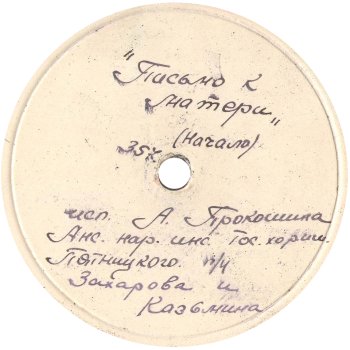 "Письмо к
матери"
(начало)
35к
исп. А. Прокошина
Анс. нар. инс. Гос. хора им.
Пятницкого п/у
Захарова и
Казьмина